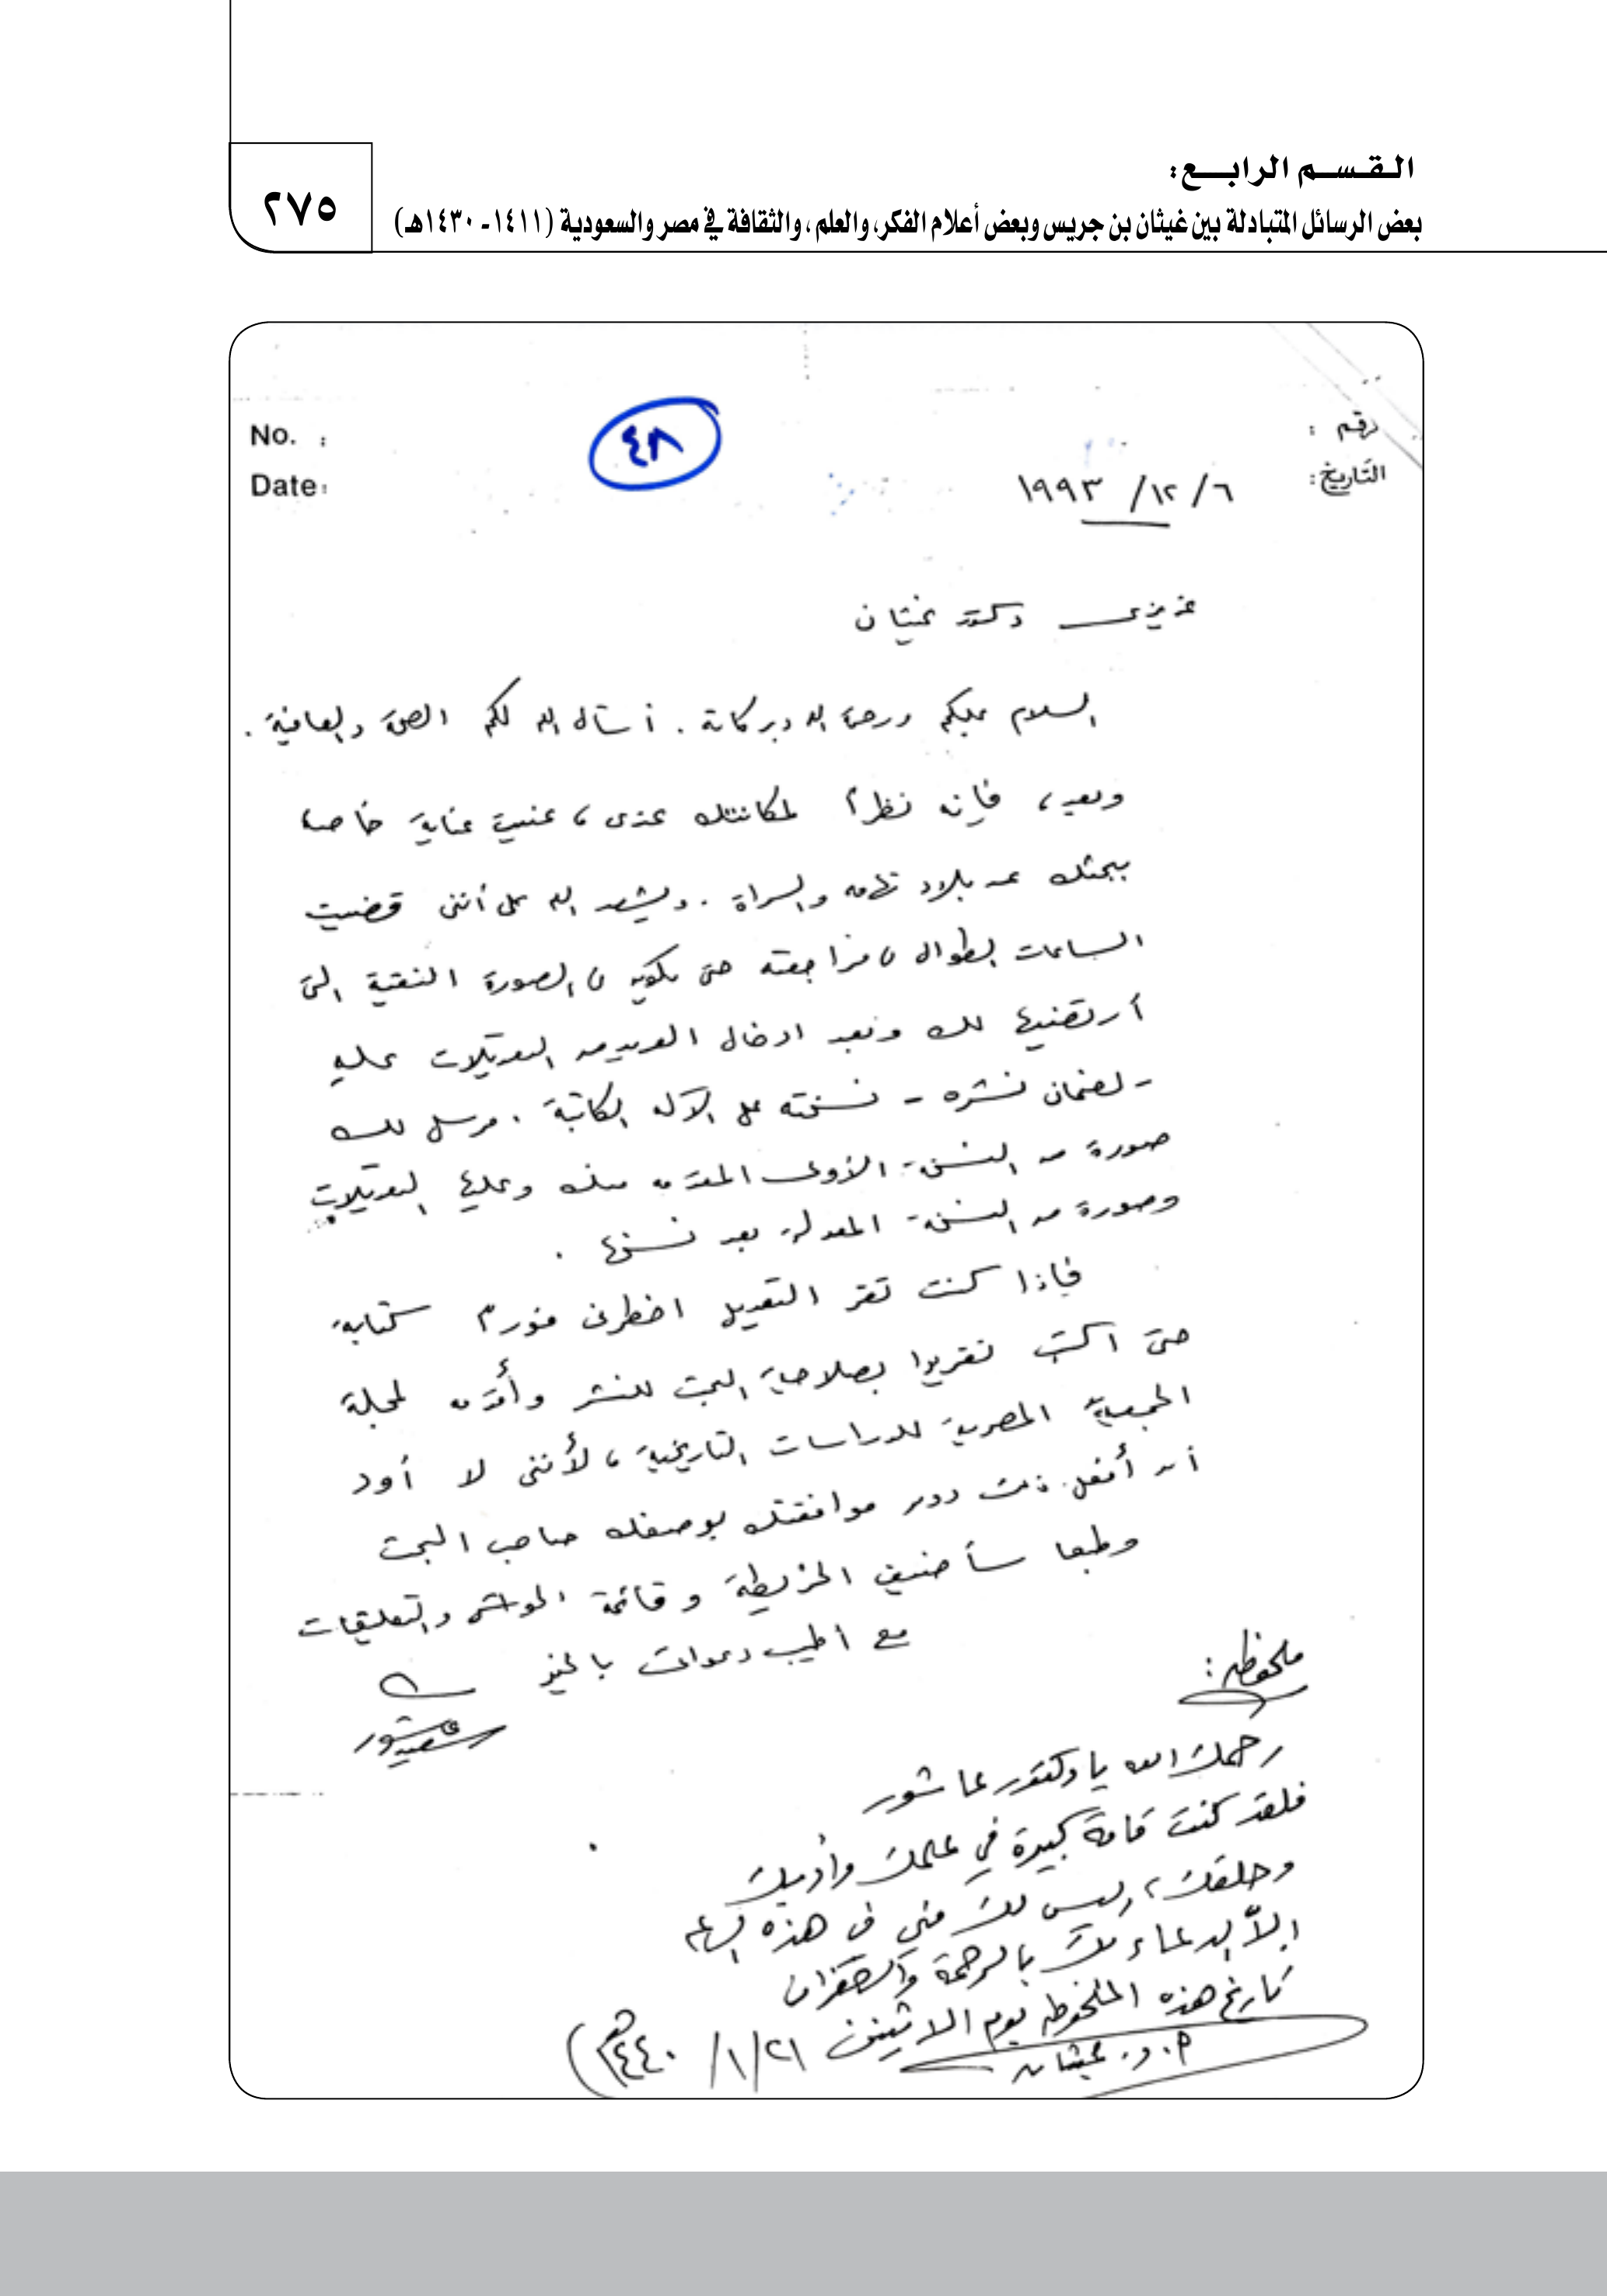 القسم الرابع:
بعض الرسائل المتبادلة بين غيثان بن جريس وبعض أعلام الفكر، والعلم، والثقافة في مصر والسعودية (١٤١١- ١٤٣٠هـ)
٢٧٥
No. :
رقم :
٤٨
Date:
التاريخ:
٦ /١٢/ ١٩٩٣
عزيزى دكتور غيثان
السلام عليكم ورحمة الله وبركاته . أسأل الله لكم الصحة والعافية .
وبعد ، فإنه نظراً لمكانتك عندى ، عنيت عناية خاصة
ببحثك عن بلاد تهامه والسراة . ويشهد الله على أننى قضيت
الساعات الطوال فى مراجعته حتى يكون فى الصورة النقية التى
أرتضيها لك وبعد ادخال العديد من التعديلات عليه
- لضمان نشره - نسخته على الآلة الكاتبة . مرسل لك
صورة من النسخة الأولى المقدمه منك وعليها التعديلات
وصورة من النسخة المعدلة بعد نسخها .
فاذا كنت تقر التعديل اخطرنى فورا كتابة
حتى اكتب تقريرا بصلاحية البحث للنشر وأقدمه لمجلة
الجمعية المصرية للدراسات التاريخية ، لأننى لا أود
أن أفعل ذلك دون موافقتك بوصفك صاحب البحث
وطبعا سأضيف الخريطة وقائمة الحواشى والتعليقات
مع اطيب دعوات بالخير
سعيد عاشور
ملحوظه :
رحمك الله يا دكتور عاشور
فلقد كنت قامة كبيرة في علمك وأدبك
وخلقك ، وليس لك مني في هذه
إلاّ الدعاء لك بالرحمة والغفران
تاريخ هذه الملحوظه يوم الاثنين ٢١/ ١/ ١٤٤٠هـ)
أ. د. غيثان